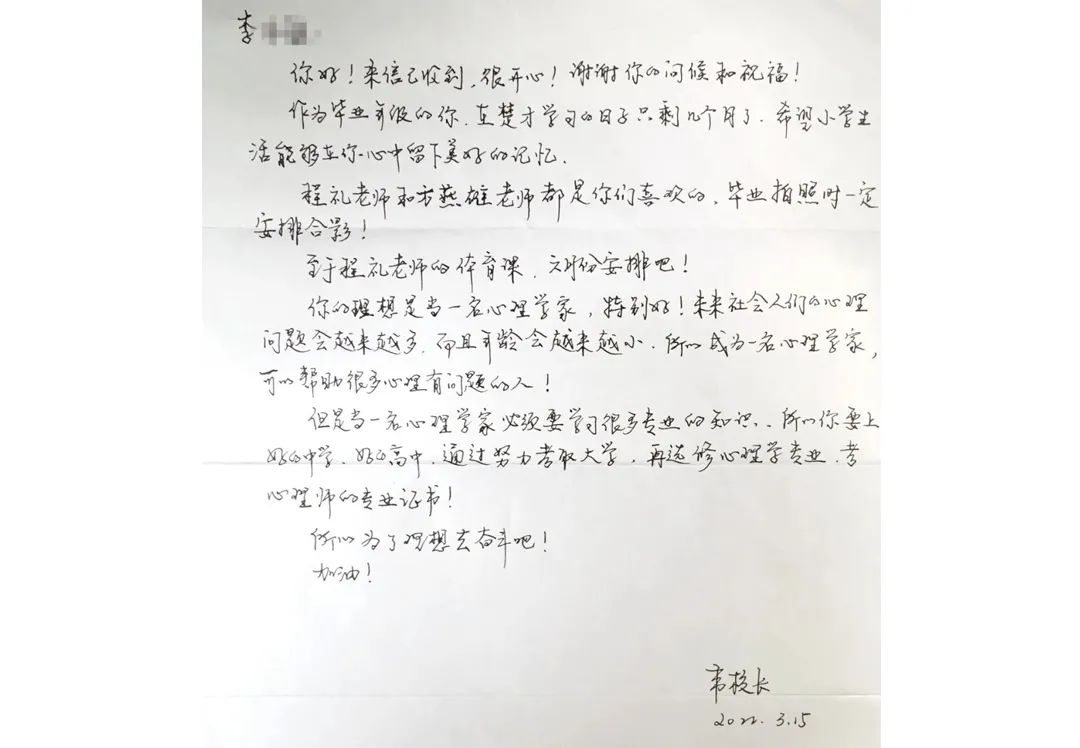 李
你好！来信已收到，很开心！谢谢你的问候和祝福！
作为毕业年级的你，在楚才学习的日子只剩几个月了．希望小学生
活能够在你心中留下美好的记忆．
程礼老师和方燕雄老师都是你们喜欢的，毕业拍照时一定
安排合影！
至于程礼老师的体育课，六月份安排吧！
你的理想是当一名心理学家，特别好！未来社会人们的心理
问题会越来越多，而且年龄会越来越小．所以成为一名心理学家，
可以帮助很多心理有问题的人！
但是当一名心理学家必须要学习很多专业的知识．所以你要上
好的中学、好的高中，通过努力考取大学，再选修心理学专业，考
心理师的专业证书！
所以为了理想去奋斗吧！
加油！
韦校长
2022.3.15